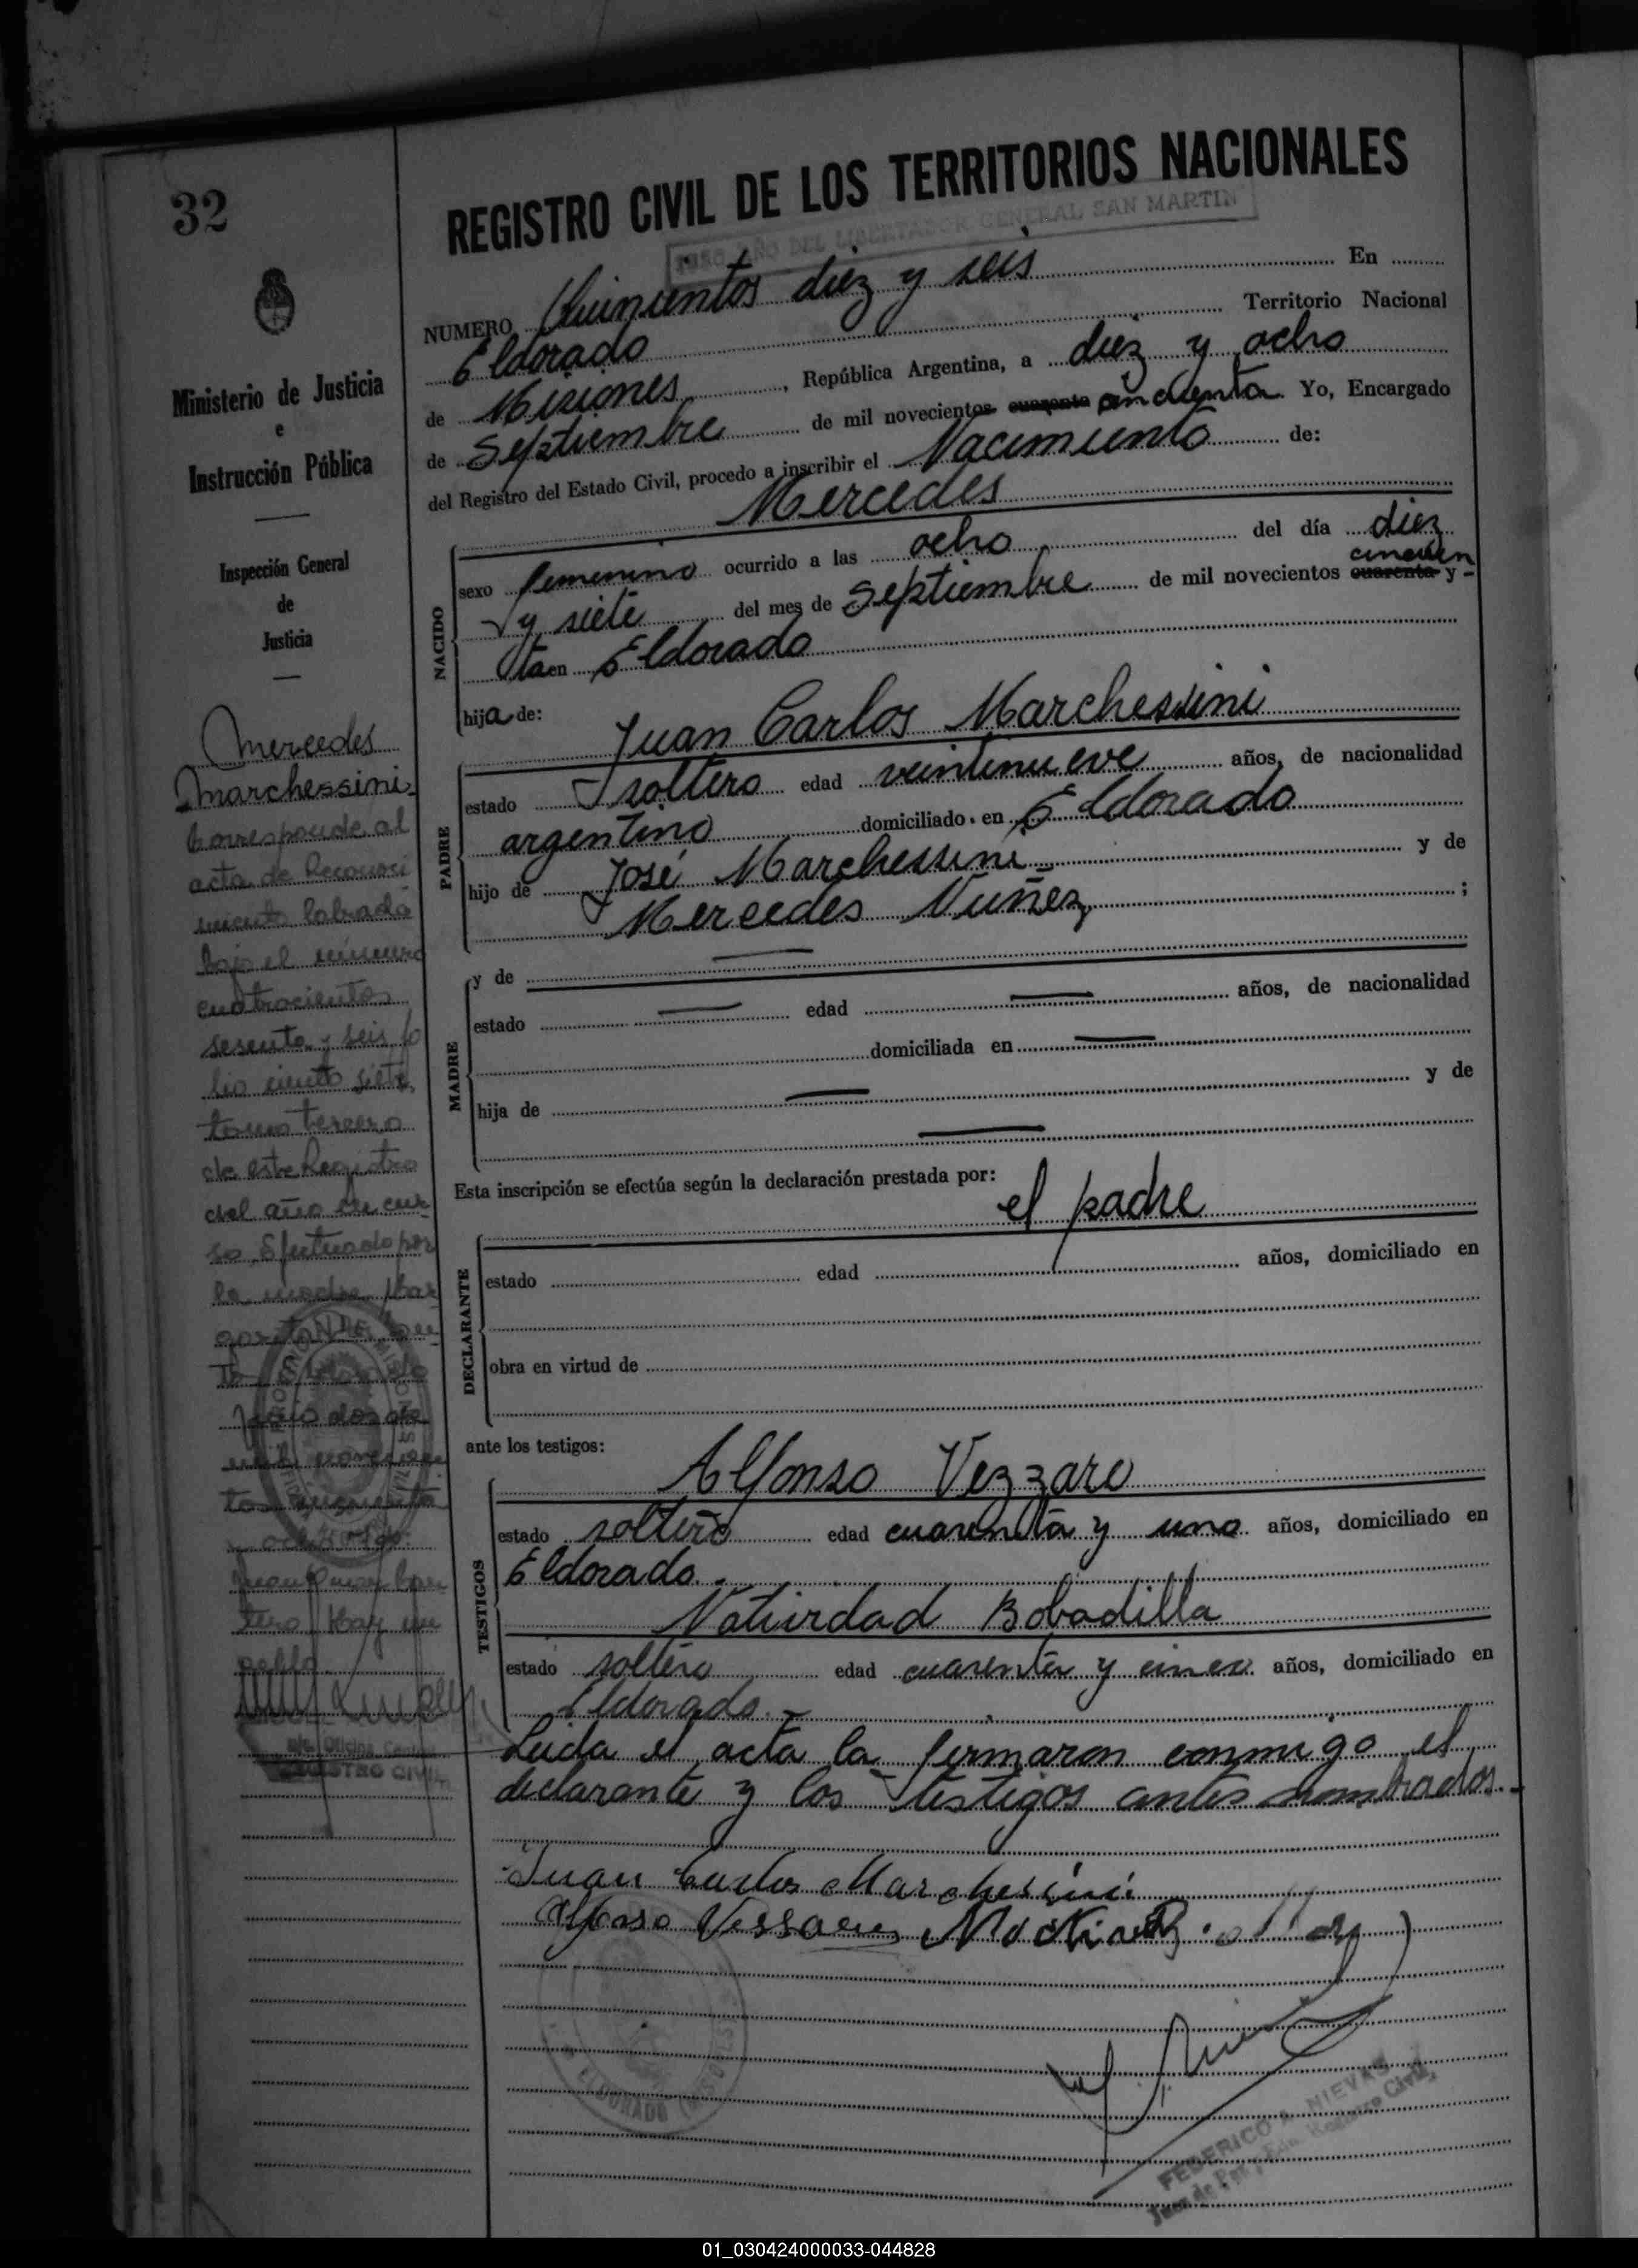 32
Ministerio de Justicia
e
Instrucción Pública
Inspección General
de
Justicia
Mercedes
Marchessini.
Corresponde al
acta de Reconoci
miento labrada
bajo el número
cuatrocientos
sesenta y seis fo
lio ciento siete,
tomo tercero
de este Registro
del año en cur
so. Efectuado por
la madre Mar
dos de
mil novecien
tos cincuenta
y ocho.
Hay un
sello.
Oficina Central
REGISTRO CIVIL
REGISTRO CIVIL DE LOS TERRITORIOS NACIONALES
1950 AÑO DEL LIBERTADOR GENERAL SAN MARTIN
NUMERO Quinientos diez y seis En
Eldorado Territorio Nacional
de Misiones, República Argentina, a diez y ocho
de Septiembre de mil novecientos cuarenta cincuenta. Yo, Encargado
del Registro del Estado Civil, procedo a inscribir el Nacimiento de:
Mercedes
NACIDO
sexo femenino ocurrido a las ocho del día diez
y siete del mes de Septiembre de mil novecientos cuarenta y cincuen
ta en Eldorado
hija de:
PADRE
Juan Carlos Marchessini
estado soltero edad veintinueve años, de nacionalidad
argentino domiciliado en Eldorado
hijo de José Marchessini y de
Mercedes Nuñez ;
MADRE
y de
estado edad años, de nacionalidad
domiciliada en
hija de y de
Esta inscripción se efectúa según la declaración prestada por:
el padre
DECLARANTE
estado edad años, domiciliado en
obra en virtud de
ante los testigos:
TESTIGOS
Alfonso Vezzaro
estado soltero edad cuarenta y uno años, domiciliado en
Eldorado.
Natividad Bobadilla
estado soltero edad cuarenta y cinco años, domiciliado en
Eldorado.-
Leida el acta la firmaron conmigo el
declarante y los testigos antes nombrados.-
Juan Carlos Marchesini
Alfonso Vessaro
ELDORADO (MISIONES)
FEDERICO A. NIEVAS
Juez de Paz y Enc. Registro Civil
01_030424000033-044828